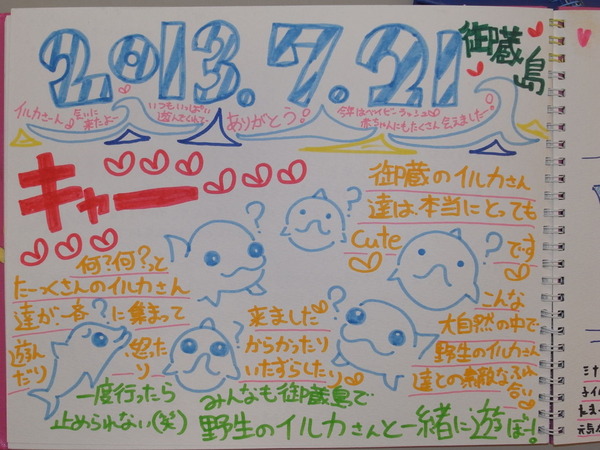 2013.7.21 御蔵島
イルカさーん 会いに来たよー
いつもいっぱい遊んでくれて
ありがとう!
今年はベイビーラッシュ
赤ちゃんにもたくさん会えましたー!
キャー
御蔵のイルカさん
達は、本当にとっても
cuteです
何?何?っと
たーっくさんのイルカさん
達が、一斉?に集まって
来ました
遊んだり
怒ったり
からかったり
いたずらしたり
こんな
大自然の中で
野生のイルカさん
達との素敵なふれ合い
一度行ったら
止められない(笑)
みんなも御蔵島で
野生のイルカさんと一緒に遊ぼー!